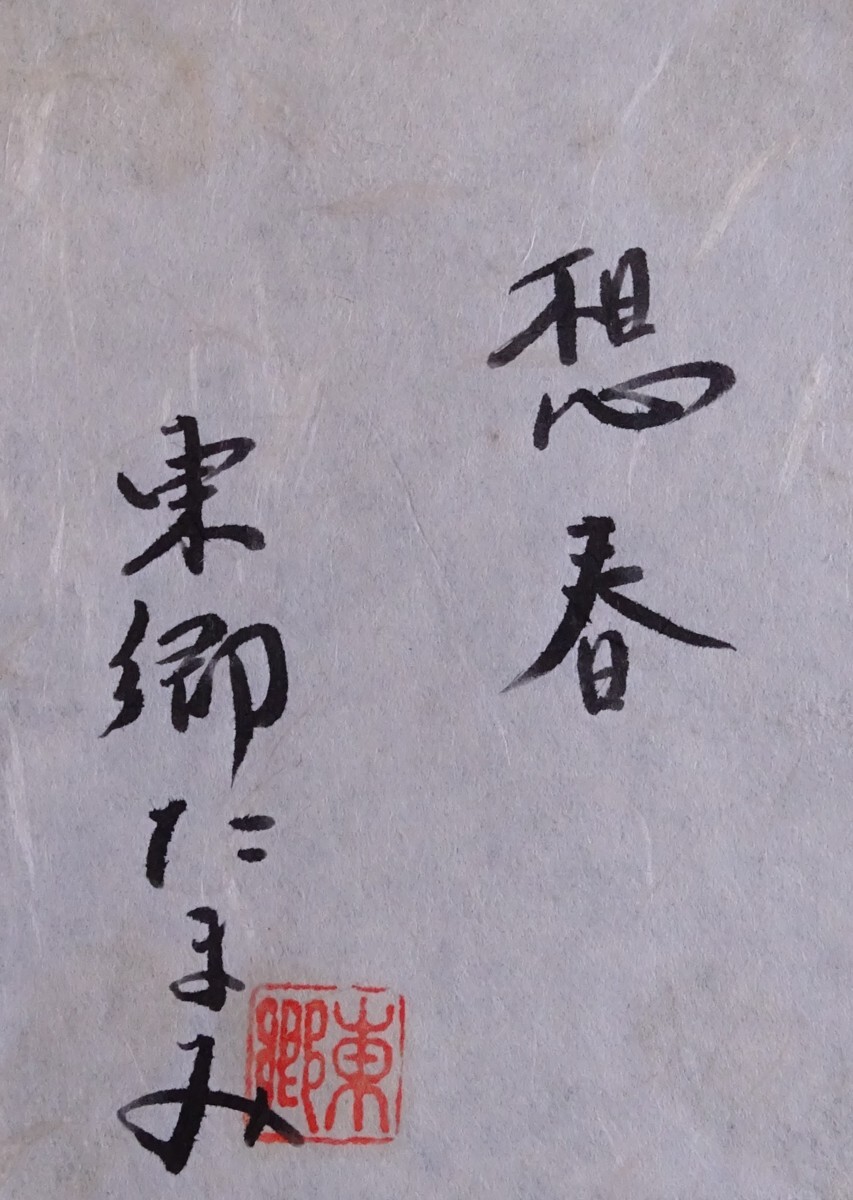 想春
東郷たまみ
東郷